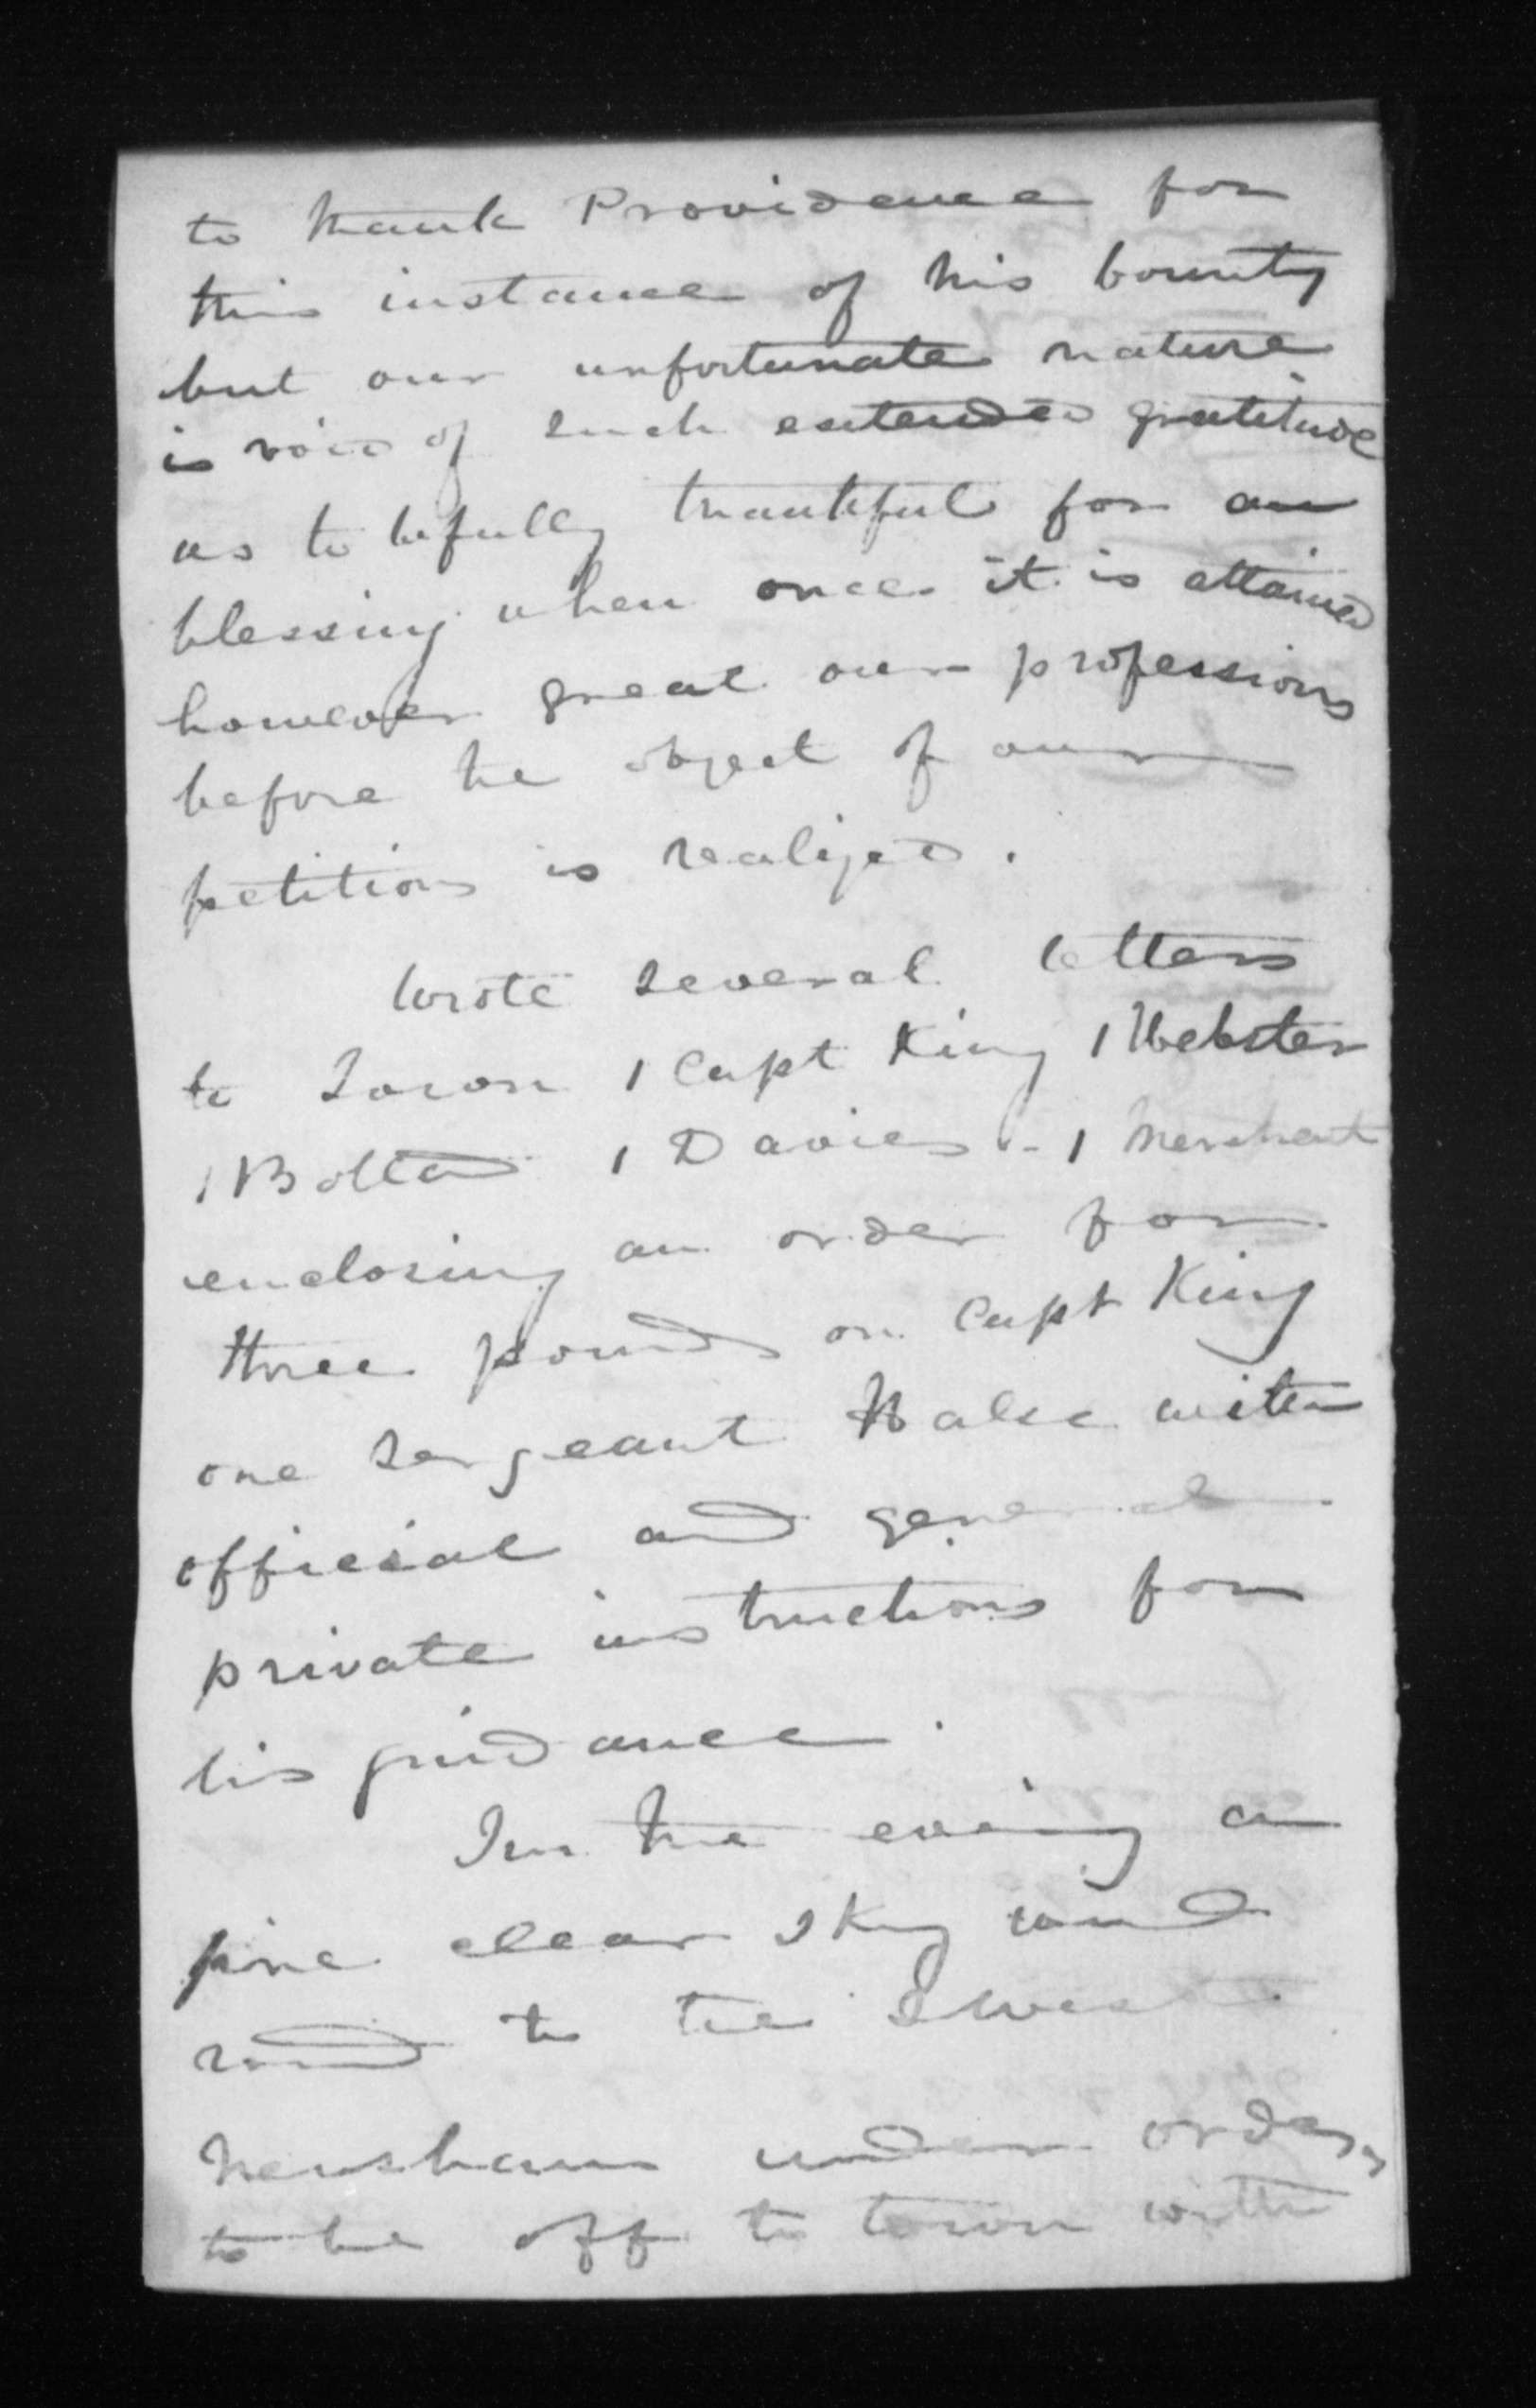 to thank Providence for
this instance of his bounty
but our unfortunate nature
is void of such extended gratitude
as to be fully thankful for an
blessing when once it is attained
however great our professions
before the object of our
petitions is realized.
Wrote several letters
to Town 1 Capt King 1 Webster
1 Bolton 1 Davies - 1 Merchant
enclosing an order for
three pounds on Capt King
one Sergeant Halse with
official and general
private instructions for
his guidance.
In the evening a
fine clear sky wind
round to the S West
Newsham under orders
to be off to town with